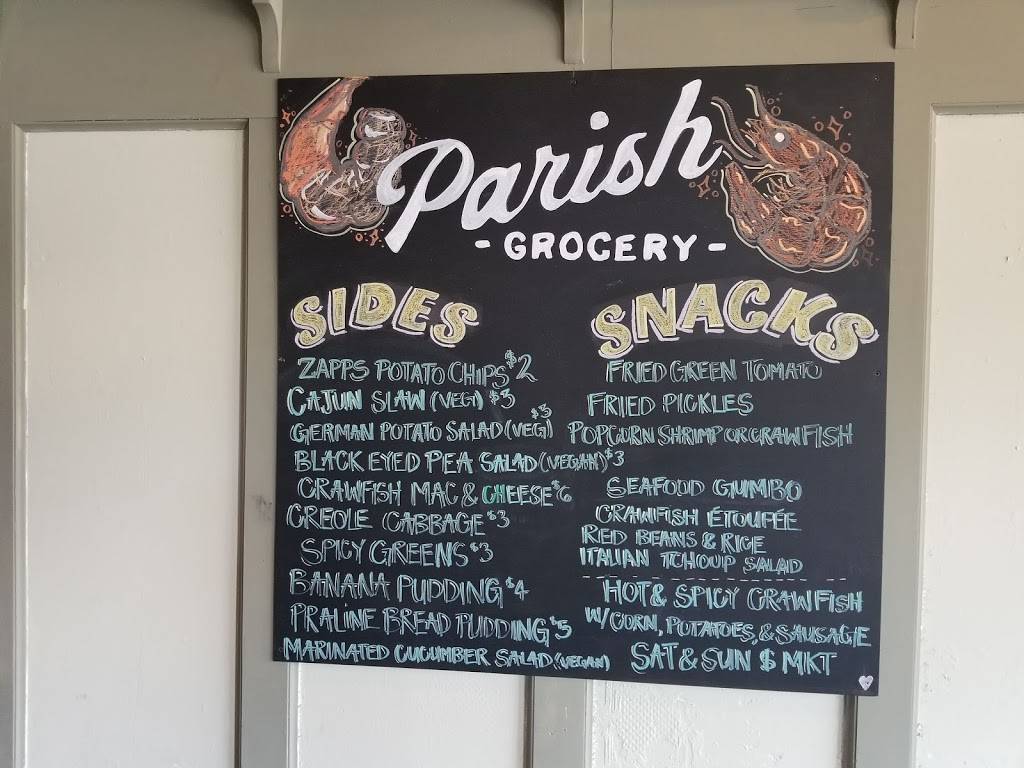 Parish
- GROCERY -
SIDES
ZAPPS POTATO CHIPS $2
CAJUN SLAW (VEG) $3
GERMAN POTATO SALAD (VEG) $3
BLACK EYED PEA SALAD (VEGAN) $3
CRAWFISH MAC & CHEESE $6
CREOLE CABBAGE $3
SPICY GREENS $3
BANANA PUDDING $4
PRALINE BREAD PUDDING $5
MARINATED CUCUMBER SALAD (VEGAN)
SNACKS
FRIED GREEN TOMATO
FRIED PICKLES
POPCORN SHRIMP OR CRAWFISH
SEAFOOD GUMBO
CRAWFISH ÉTOUFÉE
RED BEANS & RICE
ITALIAN TCHOUP SALAD
HOT & SPICY CRAWFISH
W/ CORN, POTATOES, & SAUSAGE
SAT & SUN $ MKT